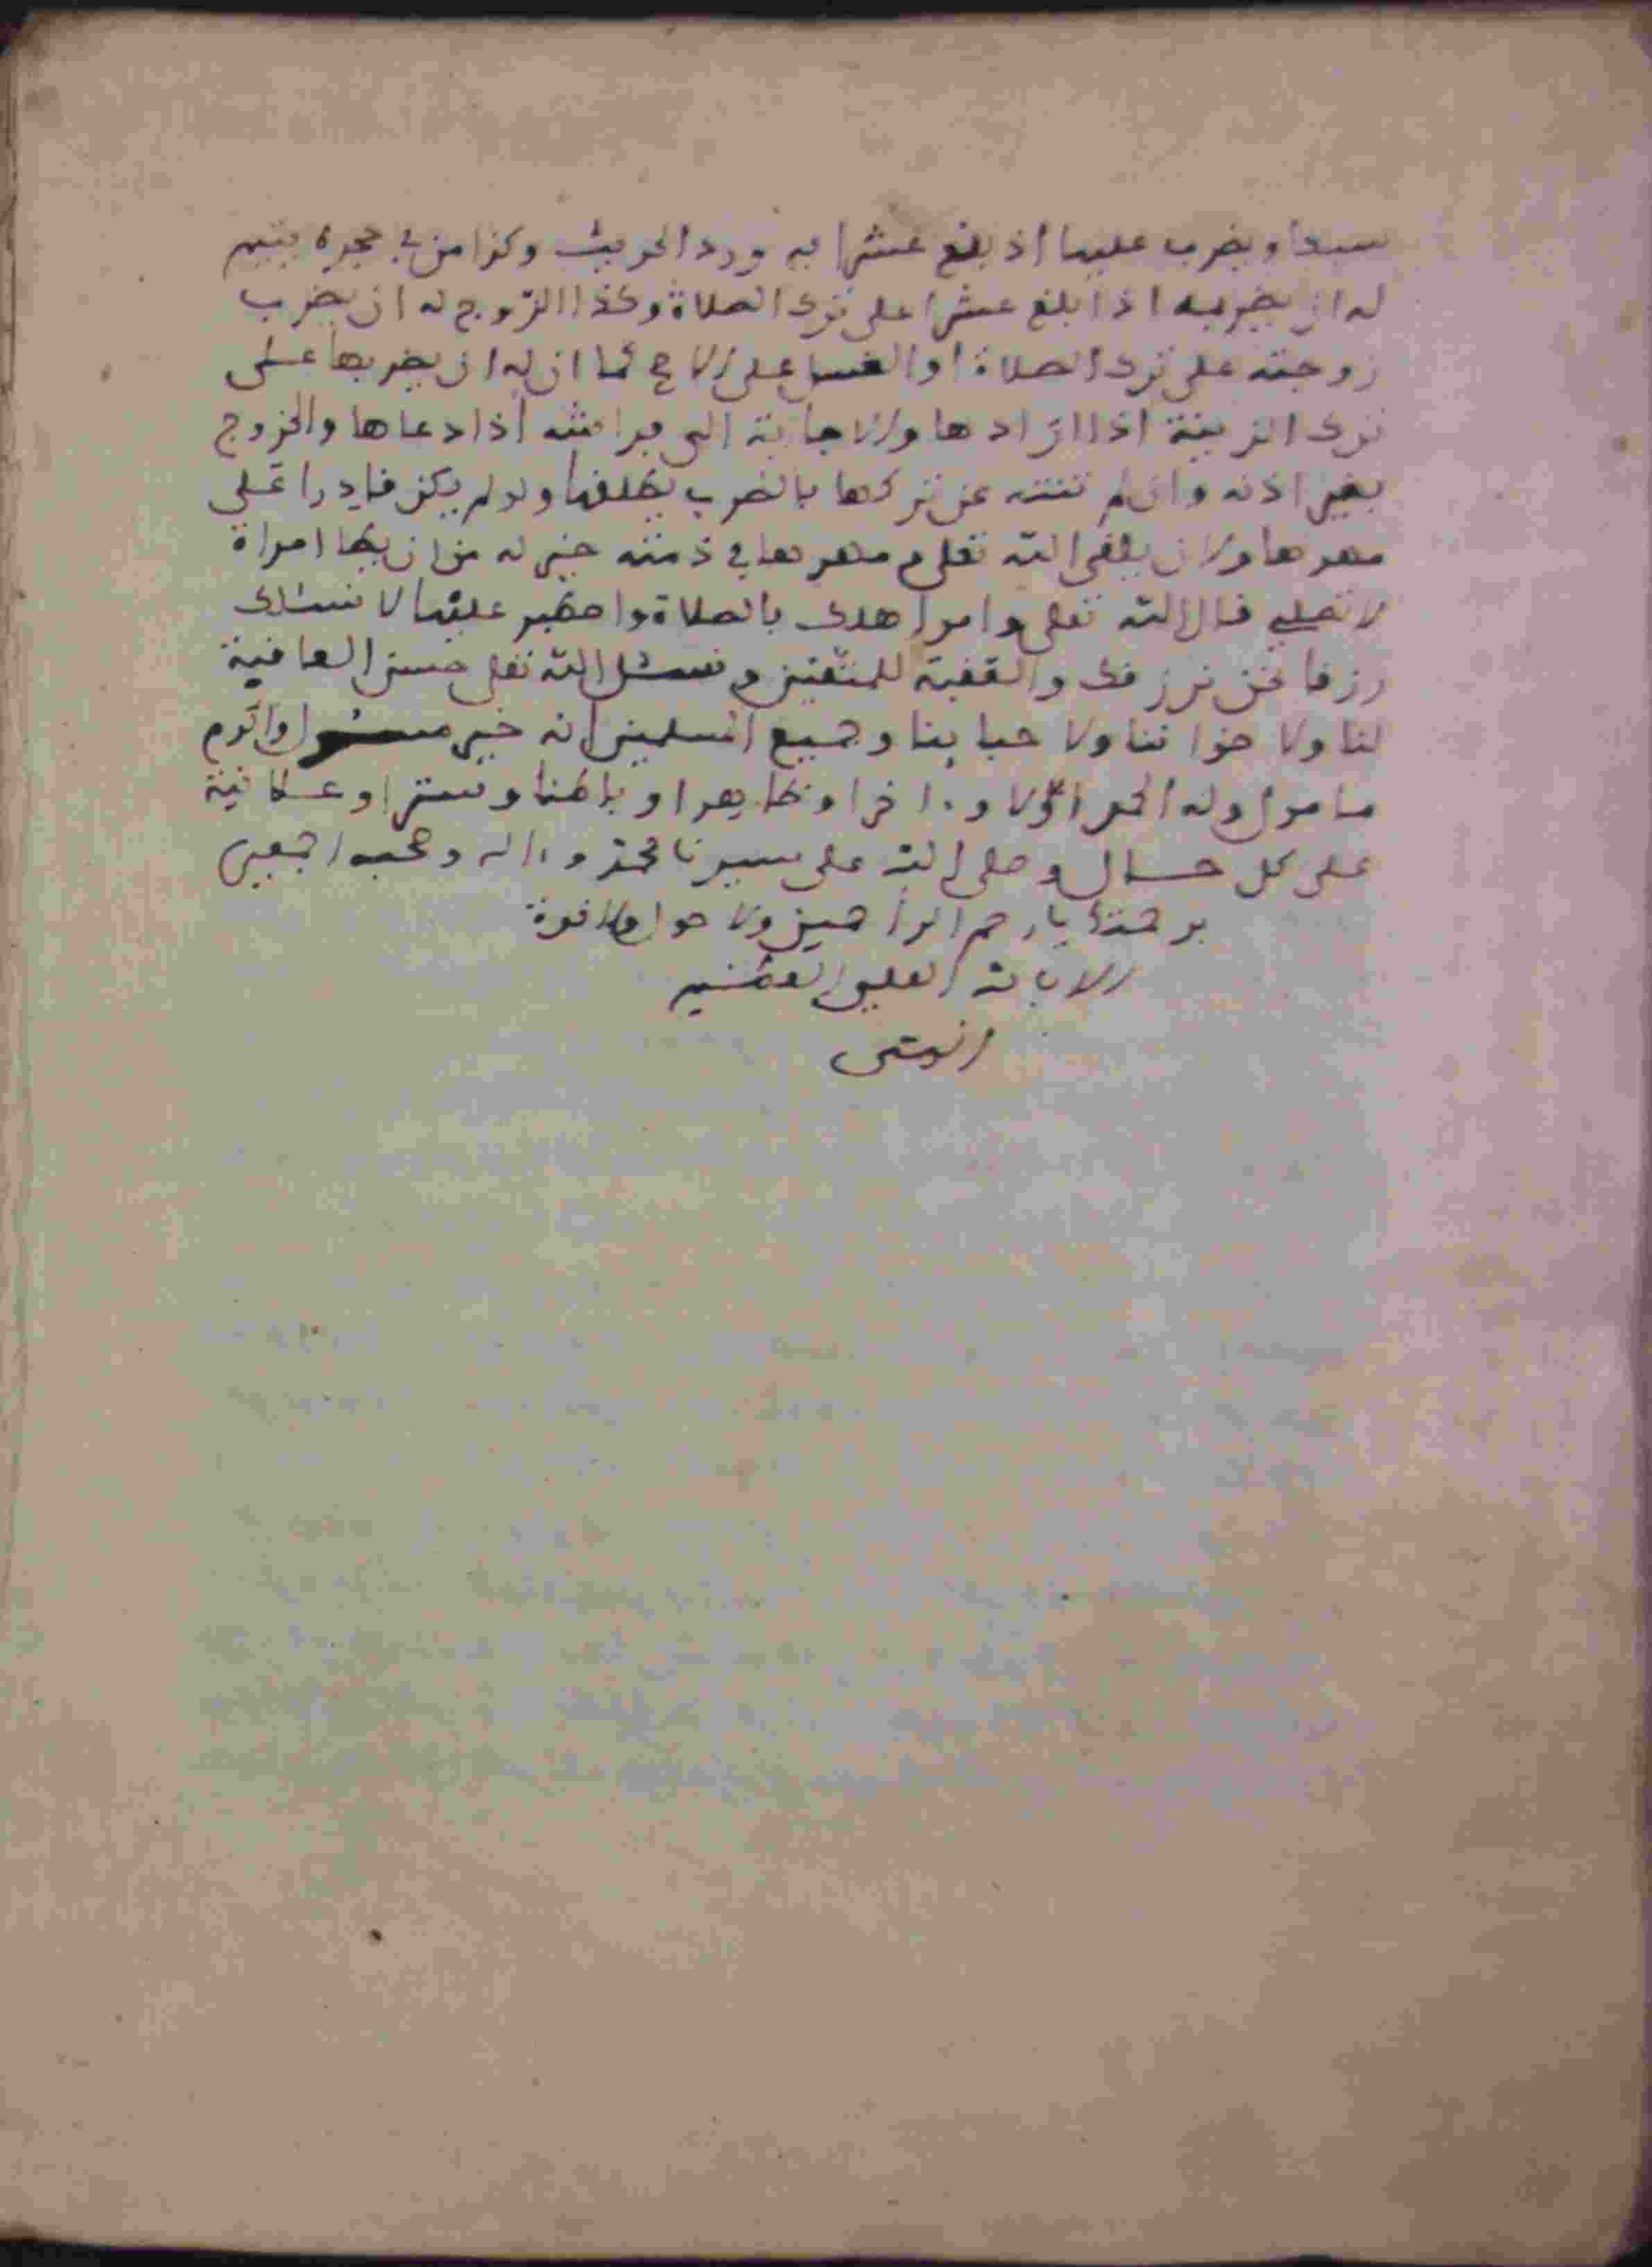 سبعا ويضرب عليها اذ بلغ عشرا به ورد الحديث وكذا من في حجره يتيم
له ان يضربه اذا بلغ عشرا على ترك الصلاة وكذا الزوج له ان يضرب
زوجته على ترك الصلاة او الغسل على الاصح كما ان له ان يضربها على
ترك الزينة اذا ارادها والاجابة الى فراشه اذا دعاها والخروج
بغير اذنه وان لم تنته عن تركها بالضرب يطلقها ولو لم يكن قادرا على
مهرها ولان يلقى الله تعلى ومهرها في ذمته خير له من ان يطا امراة
لا تصلي قال الله تعلى وامر اهلك بالصلاة واصطبر عليها لا نسئلك
رزقا نحن نرزقك والعقبة للمتقين ونسئل الله تعلى حسن العافية
لنا ولاخواننا ولاحبابنا وجميع المسلمين انه خير مسئول واكرم
مامول وله الحمد اولا وءاخرا وظاهرا وباطنا وسترا وعلانية
على كل حال وصلى الله على سيدنا محمد وءاله وصحبه اجمعين
برحمتك يا ارحم الراحمين ولا حول ولا قوة
الا بالله العلي العظيم
انتهى